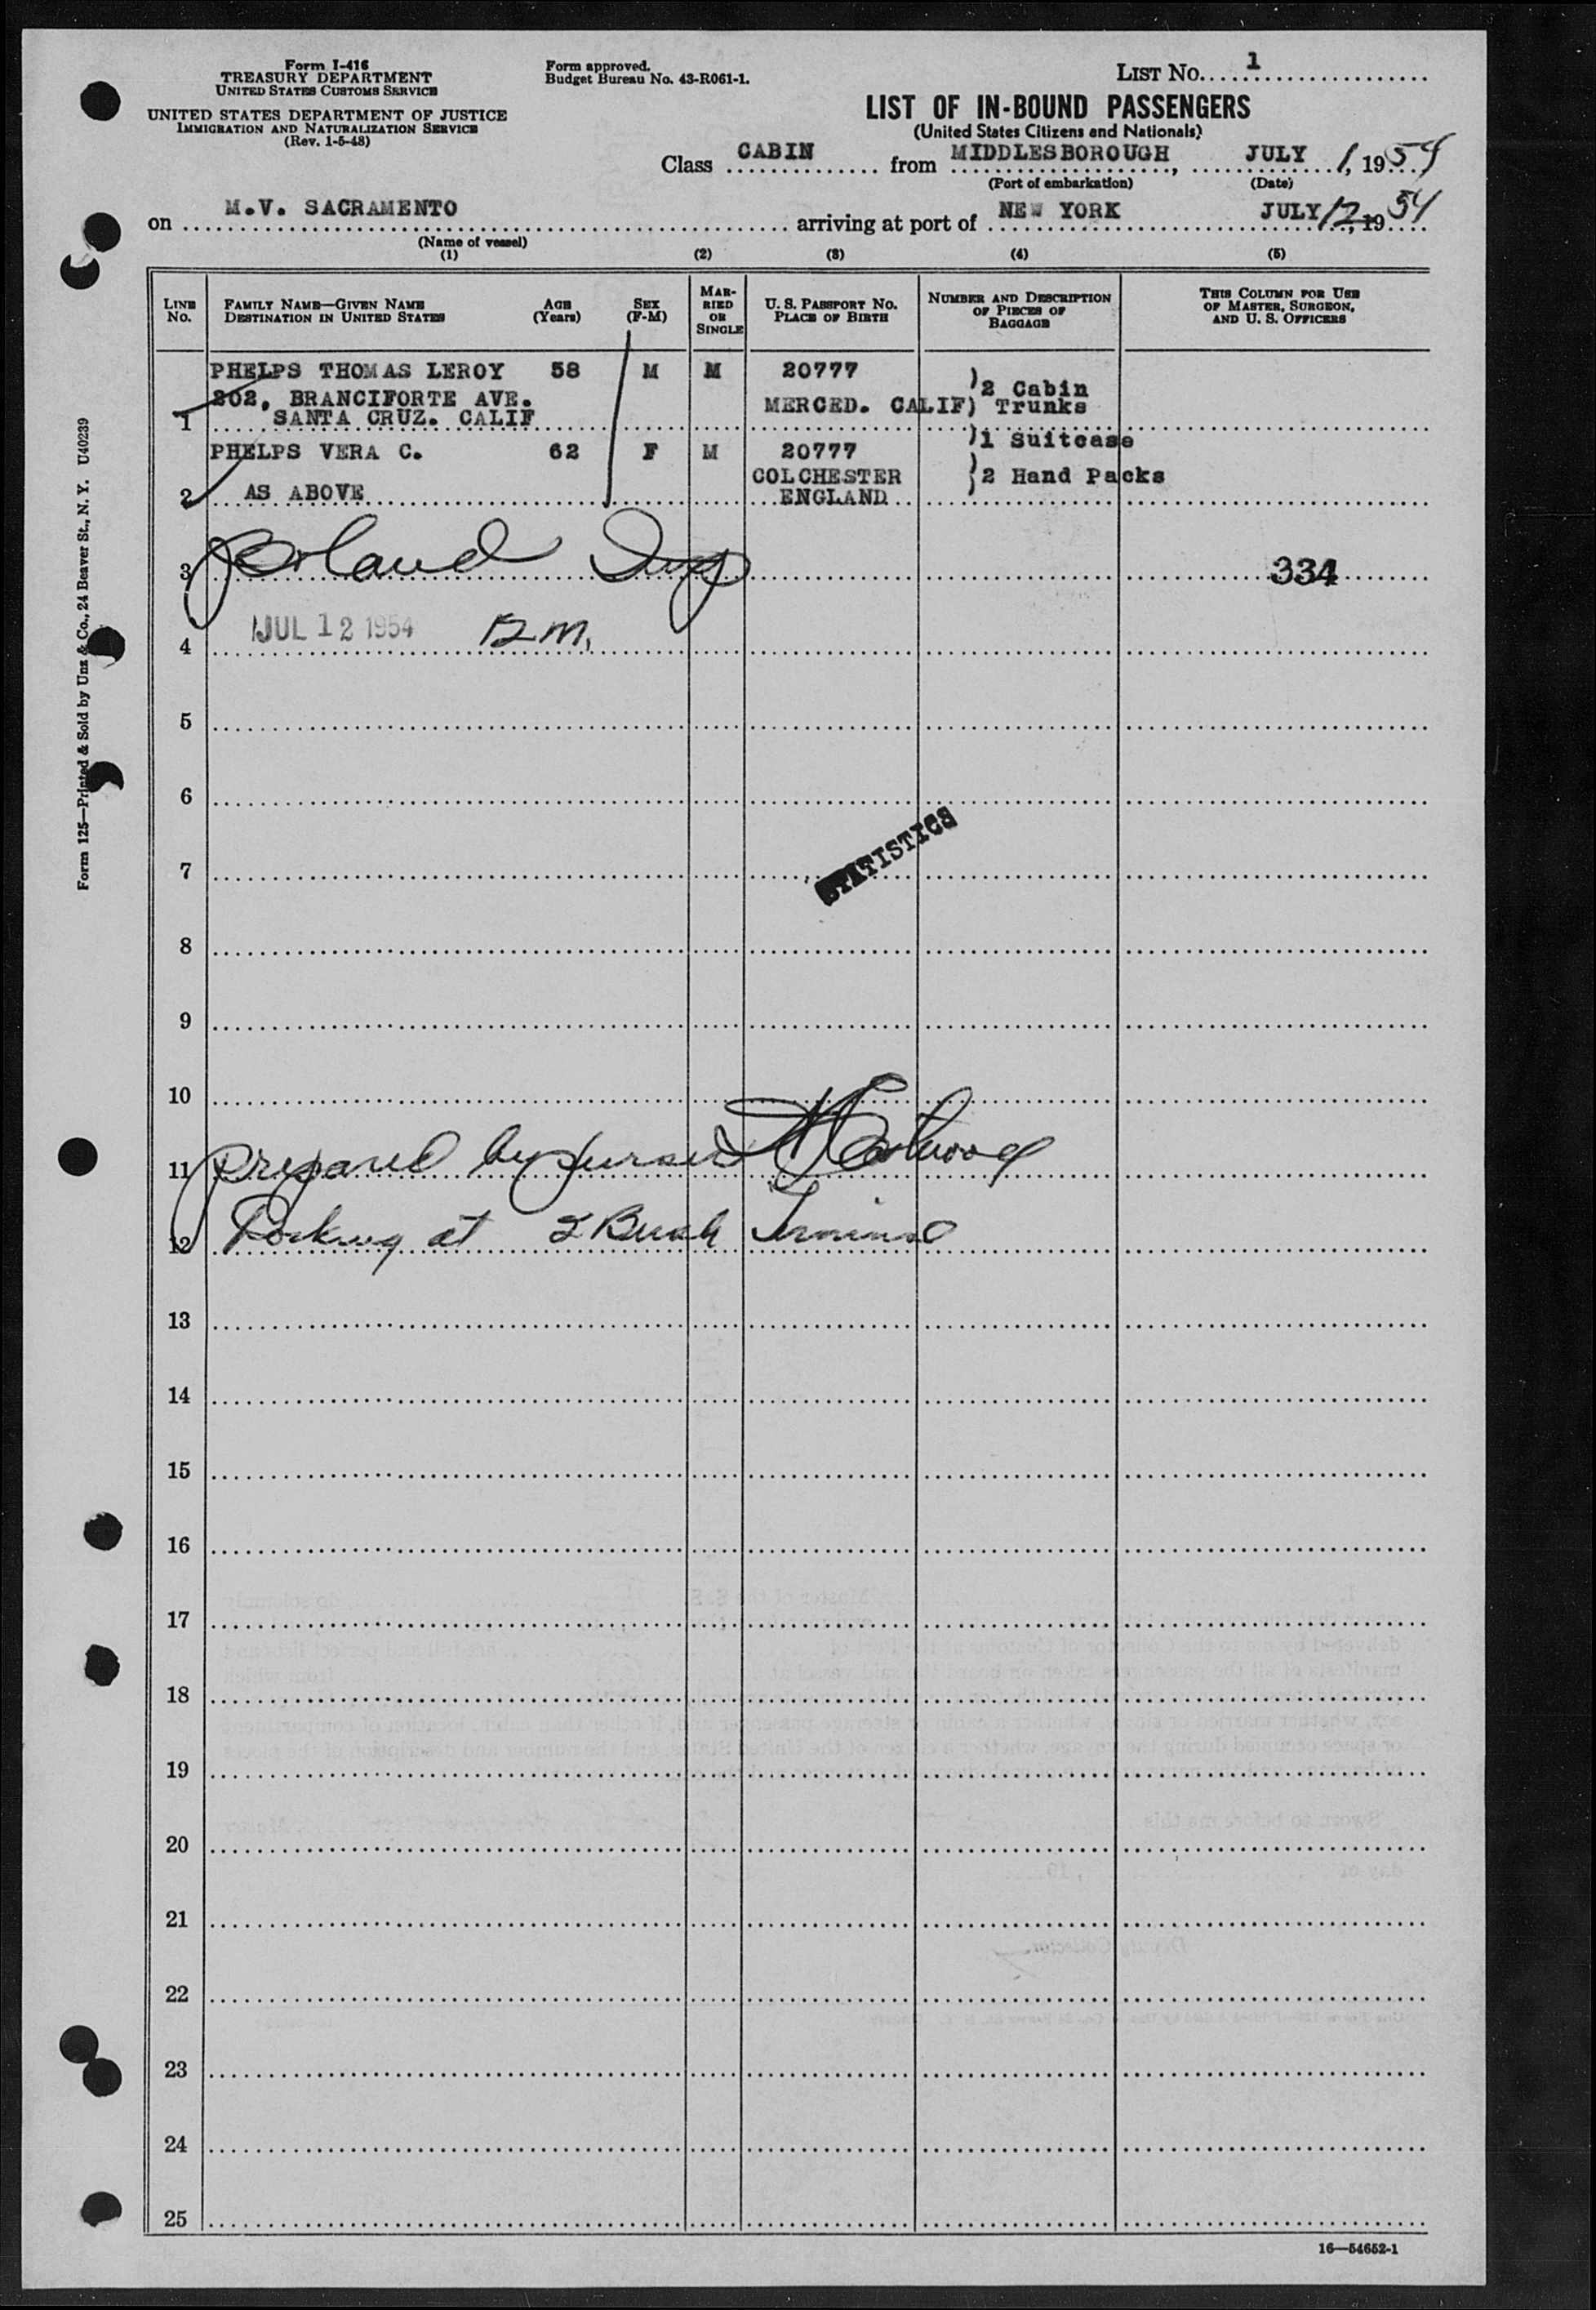 Form I-416
TREASURY DEPARTMENT
UNITED STATES CUSTOMS SERVICE
UNITED STATES DEPARTMENT OF JUSTICE
IMMIGRATION AND NATURALIZATION SERVICE
(Rev. 1-5-48)
Form approved.
Budget Bureau No. 43-R061-1.
LIST No. 1
LIST OF IN-BOUND PASSENGERS
(United States Citizens and Nationals)
Class CABIN from MIDDLESBOROUGH, JULY 1, 1954
(Port of embarkation) (Date)
on M.V. SACRAMENTO arriving at port of NEW YORK JULY 12, 1954
(Name of vessel)
(1) (2) (3) (4) (5)
LINE No.
FAMILY NAME—GIVEN NAME
DESTINATION IN UNITED STATES
AGE (Years)
SEX (F-M)
MARRIED OR SINGLE
U. S. PASSPORT NO.
PLACE OF BIRTH
NUMBER AND DESCRIPTION OF PIECES OF BAGGAGE
THIS COLUMN FOR USE OF MASTER, SURGEON, AND U. S. OFFICERS
PHELPS THOMAS LEROY 58 M M 20777
202, BRANCIFORTE AVE. MERCED. CALIF) )2 Cabin Trunks
1 SANTA CRUZ. CALIF
PHELPS VERA C. 62 F M 20777 )1 Suitcase
COLCHESTER )2 Hand Packs
2 AS ABOVE ENGLAND
3 334
4 JUL 12 1954 12 m.
5
6
STATISTICS
7
8
9
10
11 Prepared by purser
12 Docking at 2 Bush Terminal
13
14
15
16
17
18
19
20
21
22
23
24
25
16—54652-1
Form 125—Printed & Sold by Unz & Co., 24 Beaver St., N. Y. U40239